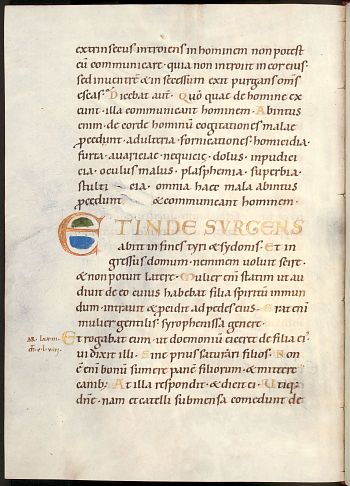 extrinsecus introiens in hominem non potest
eū communicare · quia non introit in cor eius ·
sed in uentrē & in secessum exit purgans om̄s
escas · Dicebat aut̄ · Quō quae de homine ex
eunt · illa communicant hominem · Abintus
enim · de corde hominū cogitationes malae
procedunt · adulteria · fornicationes · homicidia ·
furta · auariciae · nequicię · dolus · impudici
cia · oculus malus · blasphemia · superbia ·
stulti cia · omnia haec mala abintus
procedunt & communicant hominem ·
ET INDE SURGENS
abiit in fines tyri & sydonis · Et in
gressus domum · neminem uoluit scire ·
& non potuit latere · Mulier enī statim ut au
diuit de eo cuius habebat filia spiritū inmun
dum · intrauit & pcidit ad pedes eius · Erat enī
mulier gentilis · syrophenissa genere ·
Et rogabat eum · ut doemoniū eiceret de filia ei'
qui dixit illi · Sine prius saturari filios · Non
ē enī bonū sumere panē filiorum · & mittere
canib; At illa respondit · & dicit ei · Utiq;
dn̄e · nam et catelli sub mensa comedunt de